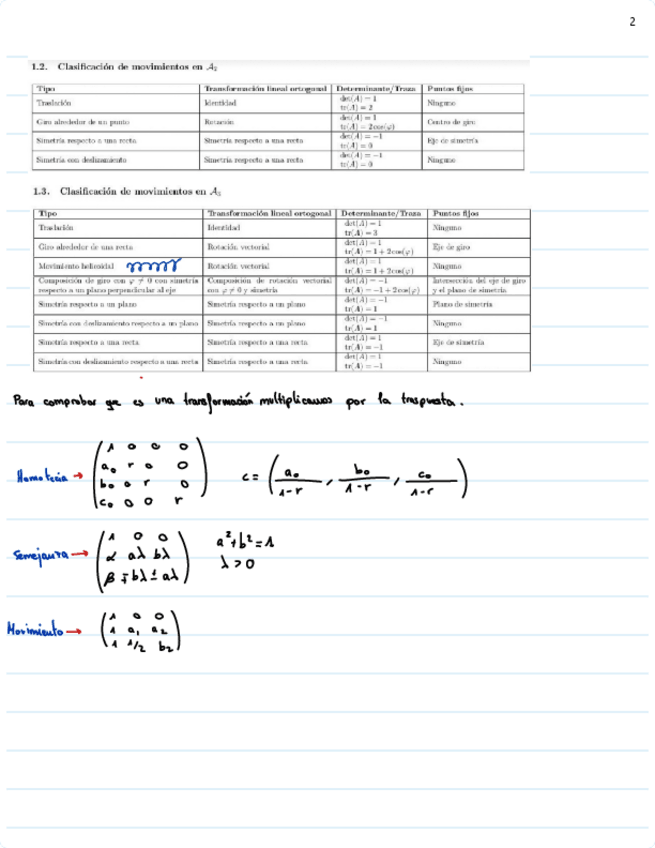 2
1.2. Clasificación de movimientos en A₂
Tipo Transformación lineal ortogonal Determinante/Traza Puntos fijos
Traslación Identidad det(A) = 1 tr(A) = 2 Ninguno
Giro alrededor de un punto Rotación det(A) = 1 tr(A) = 2cos(φ) Centro de giro
Simetría respecto a una recta Simetría respecto a una recta det(A) = −1 tr(A) = 0 Eje de simetría
Simetría con deslizamiento Simetría respecto a una recta det(A) = −1 tr(A) = 0 Ninguno
1.3. Clasificación de movimientos en A₃
Tipo Transformación lineal ortogonal Determinante/Traza Puntos fijos
Traslación Identidad det(A) = 1 tr(A) = 3 Ninguno
Giro alrededor de una recta Rotación vectorial det(A) = 1 tr(A) = 1 + 2cos(φ) Eje de giro
Movimiento helicoidal Rotación vectorial det(A) = 1 tr(A) = 1 + 2cos(φ) Ninguno
Composición de giro con φ ≠ 0 con simetría respecto a un plano perpendicular al eje Composición de rotación vectorial con φ ≠ 0 y simetría det(A) = −1 tr(A) = −1 + 2cos(φ) Intersección del eje de giro y el plano de simetría
Simetría respecto a un plano Simetría respecto a un plano det(A) = −1 tr(A) = 1 Plano de simetría
Simetría con deslizamiento respecto a un plano Simetría respecto a un plano det(A) = −1 tr(A) = 1 Ninguno
Simetría respecto a una recta Simetría respecto a una recta det(A) = 1 tr(A) = −1 Eje de simetría
Simetría con deslizamiento respecto a una recta Simetría respecto a una recta det(A) = 1 tr(A) = −1 Ninguno
Para comprobar que es una transformación multiplicamos por la traspuesta.
Homotecia → (1 0 0 0
a₀ r 0 0
b₀ 0 r 0
c₀ 0 0 r) c = (a₀/1-r, b₀/1-r, c₀/1-r)
Semejanza → (1 0 0
α aλ bλ
β ∓bλ ±aλ) a²+b²=1
λ>0
Movimiento → (1 0 0
1 a₁ a₂
1 1/2 b₂)